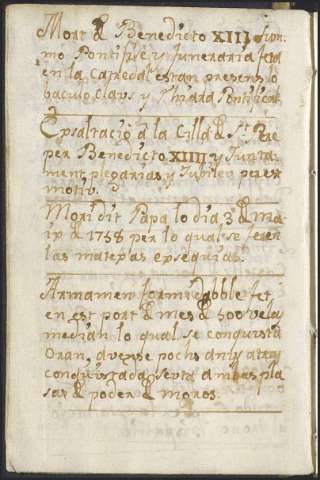 Mort de Benedicto XIII Sum-
mo Pontifice y funeraria feta
en la Catredal estan presens lo
baculo Claus y Thiara Pontifical
Exsaltació a la Cilla de St. Pere
per Benedicto XIIII y Junta-
ment pleparias y Jubileu per est
motiu.
Mori dit Papa lo dia 3 de ma-
ix de 1758 per lo qual se feren
las matexas exsequias.
Armament formidabble fet
en est port de mes de 500 velas
mediant lo qual se conquista
Oran, avense pochs anys atras
conquistada Septa ambas pla
sas de poder de moros.